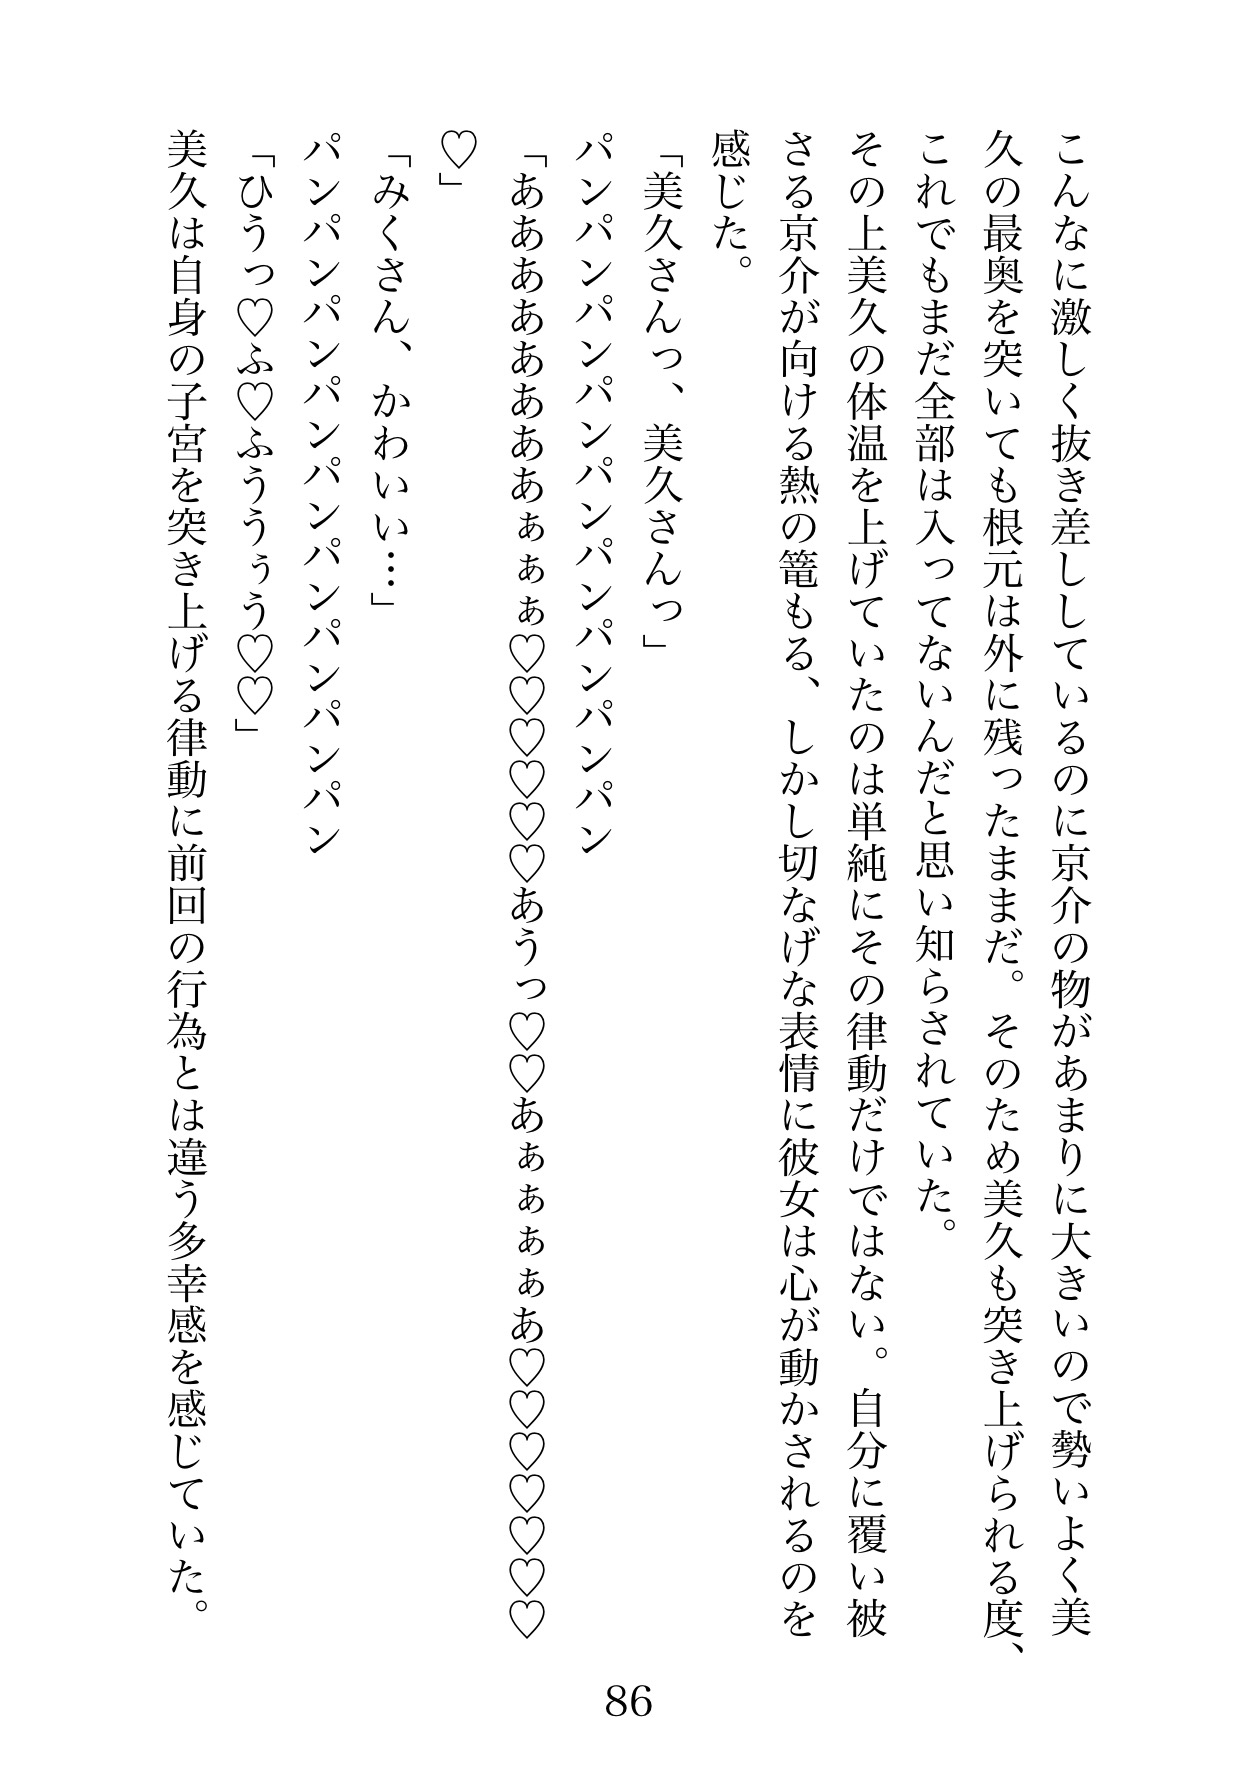 こんなに激しく抜き差ししているのに京介の物があまりに大きいので勢いよく美
久の最奥を突いても根元は外に残ったままだ。そのため美久も突き上げられる度、
これでもまだ全部は入ってないんだと思い知らされていた。
その上美久の体温を上げていたのは単純にその律動だけではない。自分に覆い被
さる京介が向ける熱の篭もる、しかし切なげな表情に彼女は心が動かされるのを
感じた。
「美久さんっ、美久さんっ」
パンパンパンパンパンパンパンパンパン
「ああああああああぁぁぁ♡♡♡♡♡♡あうっ♡♡あぁぁぁぁあ♡♡♡♡♡♡♡
♡」
「みくさん、かわいい…」
パンパンパンパンパンパンパンパンパン
「ひうっ♡ふ♡ふううぅう♡♡」
美久は自身の子宮を突き上げる律動に前回の行為とは違う多幸感を感じていた。
86